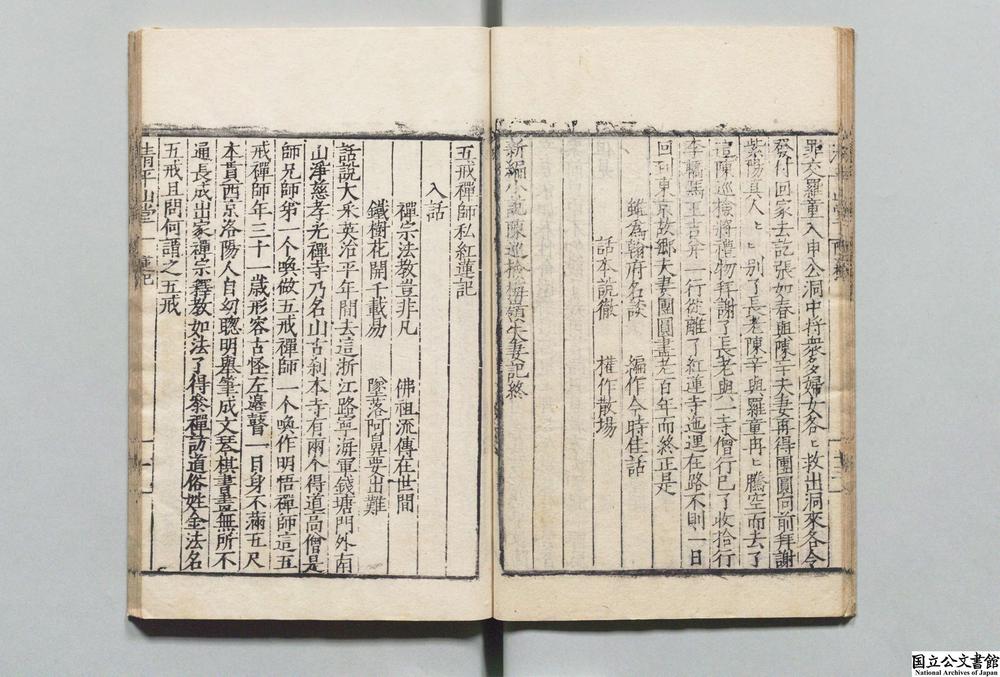 罪交羅童入申公洞中將衆多婦女各〻救出洞來各令
發付回家去訖張如春與陳辛夫妻再得團圓向前拜謝
紫陽真人〻〻別了長老陳辛與羅童再〻騰空而去了
這陳巡檢將禮物拜謝了長老與一寺僧行已了收拾行
李轎馬王吉并一行從離了紅蓮寺迤逦在路不則一日
回到東京故鄉夫妻團圓盡老百年而終正是
雖為翰府名談 編作今時佳話
話本說徹 權作散場
新編小說陳巡檢梅嶺失妻記終
五戒禪師私紅蓮記
入話
禪宗法教豈非凡 佛祖流傳在世間
鐵樹花開千載易 墜落阿鼻要出難
話說大宋英治平年間去這浙江路寧海軍錢塘門外南
山淨慈孝光禪寺乃名山古剎本寺有兩个得道高僧是
師兄師弟一个喚做五戒禪師一个喚作明悟禪師這五
戒禪師年三十一歲形容古怪左邊瞽一目身不滿五尺
本貫西京洛陽人自幼聰明舉筆成文琴棋書畫無所不
通長成出家禪宗釋教如法了得參禪訪道俗姓金法名
五戒且問何謂之五戒
清平山堂
国立公文書館
National Archives of Japan